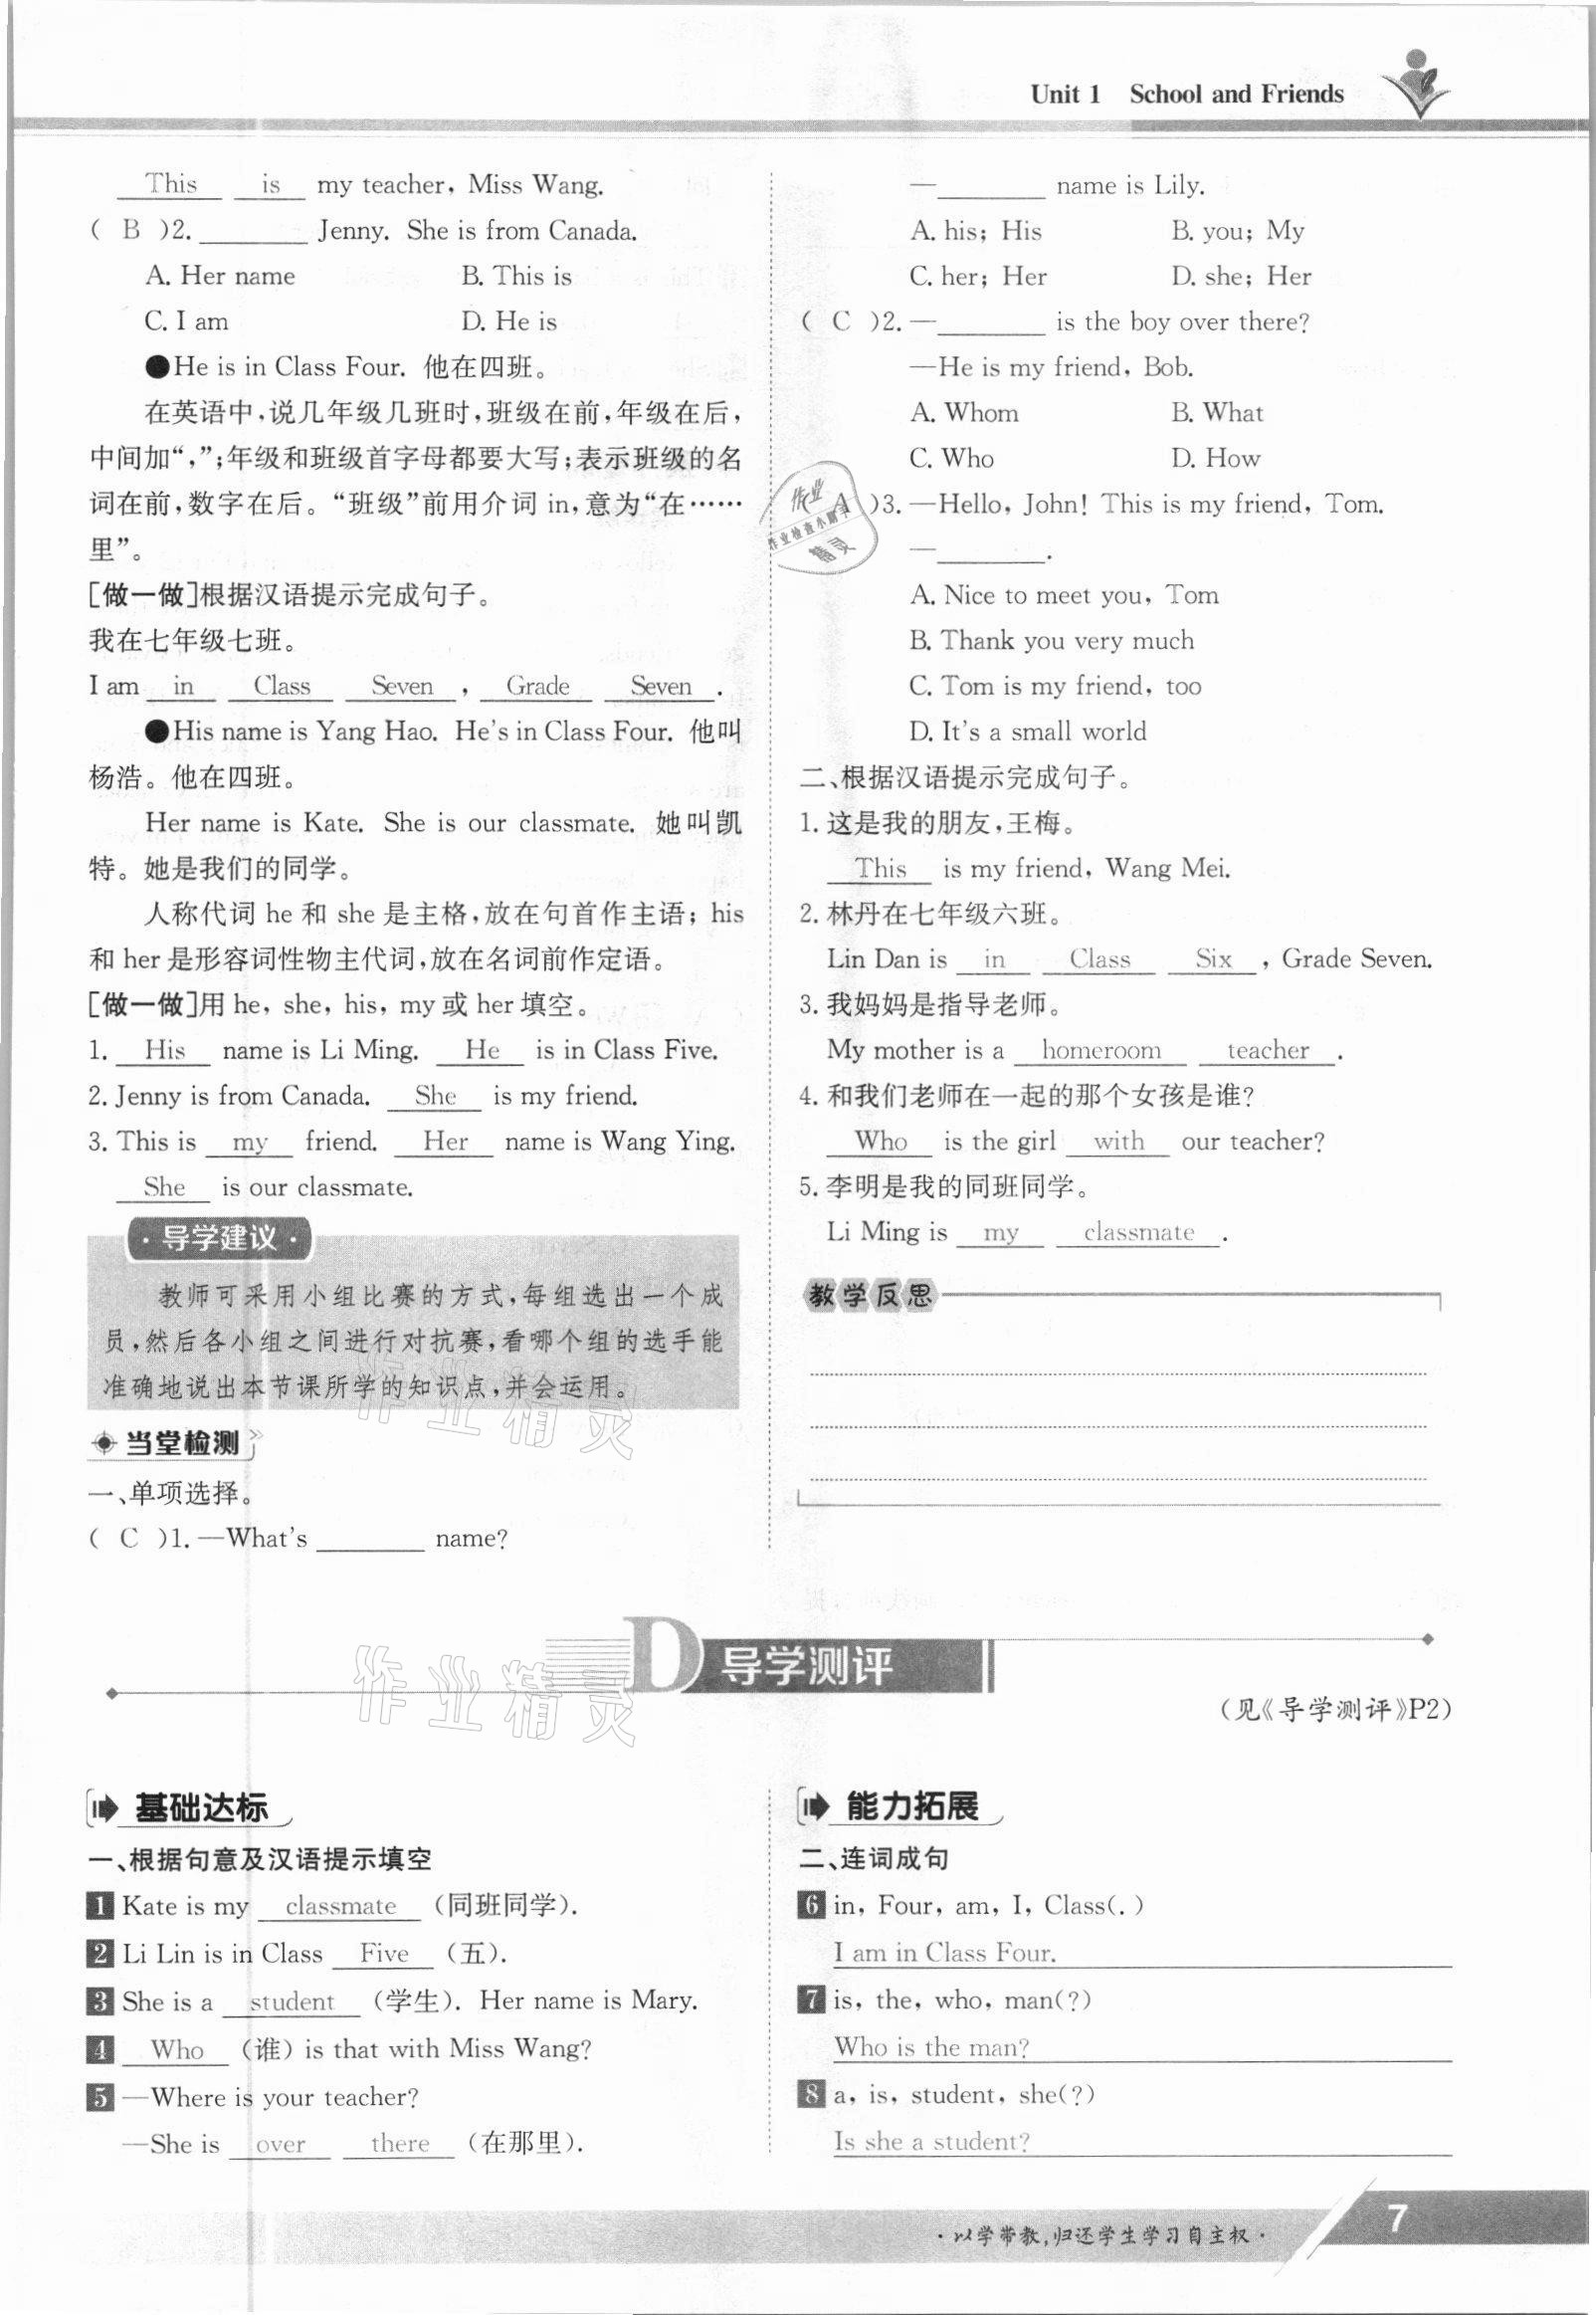 Unit 1 School and Friends
This is my teacher, Miss Wang.
( B )2. ______ Jenny. She is from Canada.
A. Her name B. This is
C. I am D. He is
●He is in Class Four. 他在四班。
在英语中,说几年级几班时,班级在前,年级在后,
中间加“,”;年级和班级首字母都要大写;表示班级的名
词在前,数字在后。“班级”前用介词 in,意为“在……
里”。
[做一做]根据汉语提示完成句子。
我在七年级七班。
I am in Class Seven , Grade Seven .
●His name is Yang Hao. He's in Class Four. 他叫
杨浩。他在四班。
Her name is Kate. She is our classmate. 她叫凯
特。她是我们的同学。
人称代词 he 和 she 是主格,放在句首作主语; his
和 her 是形容词性物主代词,放在名词前作定语。
[做一做]用 he, she, his, my 或 her 填空。
1. His name is Li Ming. He is in Class Five.
2. Jenny is from Canada. She is my friend.
3. This is my friend. Her name is Wang Ying.
She is our classmate.
·导学建议·
教师可采用小组比赛的方式,每组选出一个成
员,然后各小组之间进行对抗赛,看哪个组的选手能
准确地说出本节课所学的知识点,并会运用。
当堂检测
一、单项选择。
( C )1. —What's ______ name?
—______ name is Lily.
A. his; His B. you; My
C. her; Her D. she; Her
( C )2. —______ is the boy over there?
—He is my friend, Bob.
A. Whom B. What
C. Who D. How
A )3. —Hello, John! This is my friend, Tom.
—______.
A. Nice to meet you, Tom
B. Thank you very much
C. Tom is my friend, too
D. It's a small world
二、根据汉语提示完成句子。
1. 这是我的朋友,王梅。
This is my friend, Wang Mei.
2. 林丹在七年级六班。
Lin Dan is in Class Six , Grade Seven.
3. 我妈妈是指导老师。
My mother is a homeroom teacher .
4. 和我们老师在一起的那个女孩是谁?
Who is the girl with our teacher?
5. 李明是我的同班同学。
Li Ming is my classmate .
教学反思
D 导学测评
(见《导学测评》P2)
基础达标
一、根据句意及汉语提示填空
1 Kate is my classmate (同班同学).
2 Li Lin is in Class Five (五).
3 She is a student (学生). Her name is Mary.
4 Who (谁) is that with Miss Wang?
5 —Where is your teacher?
—She is over there (在那里).
能力拓展
二、连词成句
6 in, Four, am, I, Class(. )
I am in Class Four.
7 is, the, who, man(?)
Who is the man?
8 a, is, student, she(?)
Is she a student?
·以学带教,归还学生学习自主权·
7
作业精灵
作业精灵
作业
作业检查小助手
精灵